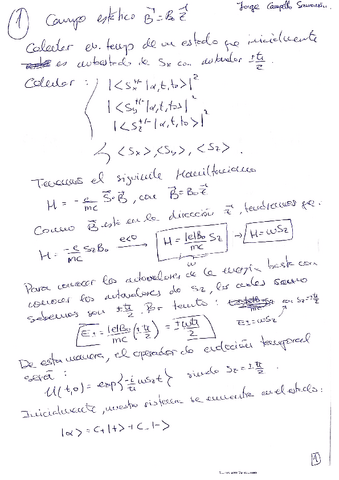 ① Campo estático B⃗ = B₀ z⃗
Calcular ev. tempo de un estado que inicialmente
es autoestado de Sx con autovalor ±ħ/2
Calcular: { |<Sx^+/- |α,t,t₀>|²
|<Sy^+/- |α,t,t₀>|²
|<Sz^+/- |α,t,t₀>|²
<Sx>, <Sy>, <Sz>.
Tenemos el siguiente Hamiltoniano
H = -e/mc S⃗·B⃗, con B⃗ = B₀ z⃗
Como B⃗ está en la dirección z⃗, tendremos que.
H = -e/mc Sz B₀ e<0 → H = |e|B₀/mc Sz → H = ωSz
ω
Para conocer los autovalores de la energía basta con
conocer los autovalores de Sz, los cuales
sabemos son ±ħ/2. Por tanto:
E± = |e|B₀/mc (±ħ/2) = ±ωħ/2 E± = ωSz
De esta manera, el operador de evolución temporal
será:
U(t,0) = exp{-i/ħ ωSz t} siendo Sz = ±ħ/2
Inicialmente, nuestro sistema se encuentra en el estado:
|α> = C₊|+> + C₋|->
1